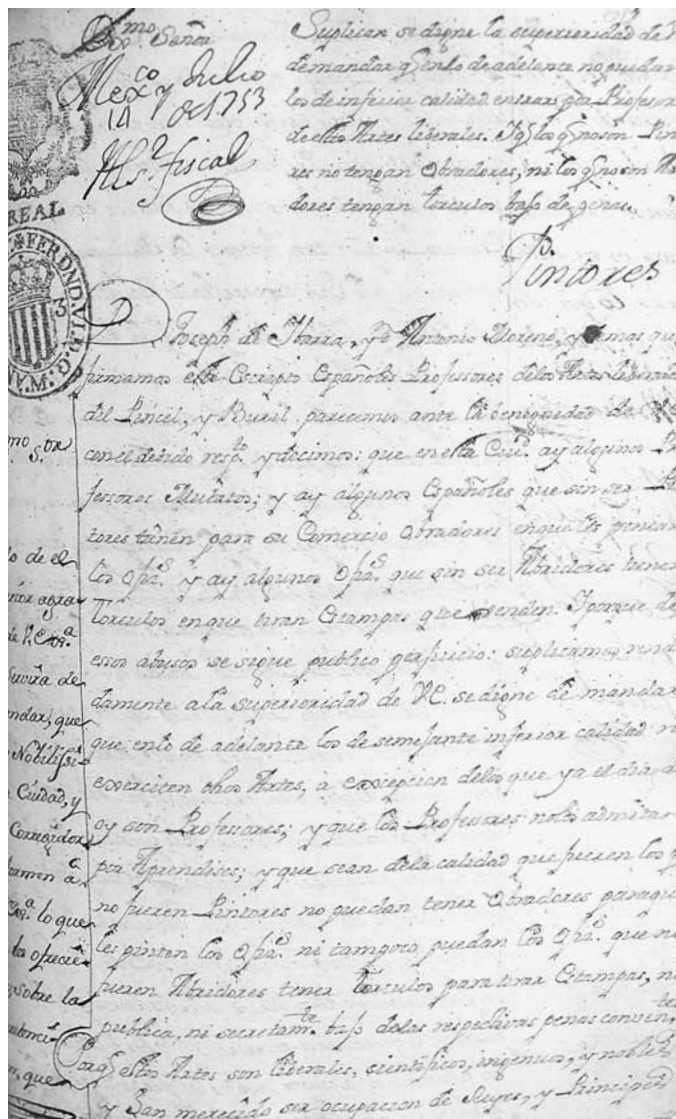 Exmo. Señor
Mexco y Julio
14 de 1753
Al Sr. fiscal
Suplican se digne la superioridad de V
demandar q̃ en lo de adelante no puedan
los de inferior calidad entrar por Profesor
de estos Artes liberales. Iq̃ los q̃ no son Pin
res no tengan Obradores, ni los q̃ no son Ab
dores tengan torculos bajo de penas
REAL
Pintores
FERDND.VI.D.G.
3
D. Joseph de Ibarra, y Dn Antonio Moreno, y demas que
firmamos este Escripto Españoles Professores de los Artes liberales
del Pincel, y Buril parecemos ante la benignidad de
con el devido respto. y decimos: que en esta Ciud. ay algunos Pro
fessores Mulatos; y ay algunos Españoles que sin ser Pin
tores tienen para su Comercio Obradores en quales pintan
los Ofizs. y ay algunos Ofizs. que sin ser Abridores tienen
Torculos en que tiran Estampas que venden. I porque de
essos abusos se sigue publico perjuicio: suplicamos rendi
damente a la superioridad de VE. se digne de mandar
que en lo de adelante los de semejante inferior calidad no
exerciten dhos Artes, à excepcion de los que ya el dia de
oy son Professores; y que los Professores no los admitan
por Aprendises; y que sean de la calidad que fueren los q
no fueren Pintores no puedan tener Obradores para que
les pinten los Ofizs. ni tampoco puedan los Ofizs. que no
fueren Abridores tener Torculos para tirar Estampas, ni
publica, ni secretamte. bajo de las respectivas penas conventes.
Porq̃ estos Artes son liberales, scientificos, ingenuos, y nobles
y han merecido ser ocupacion de Reyes, y Principes
mo. Sor
lo de el
de V. Exa.
servira de
mandar, que
Nobilissi
Ciudad, y
Corregidor
formen à
Exa. lo que
les ofrecie
sobre la
que